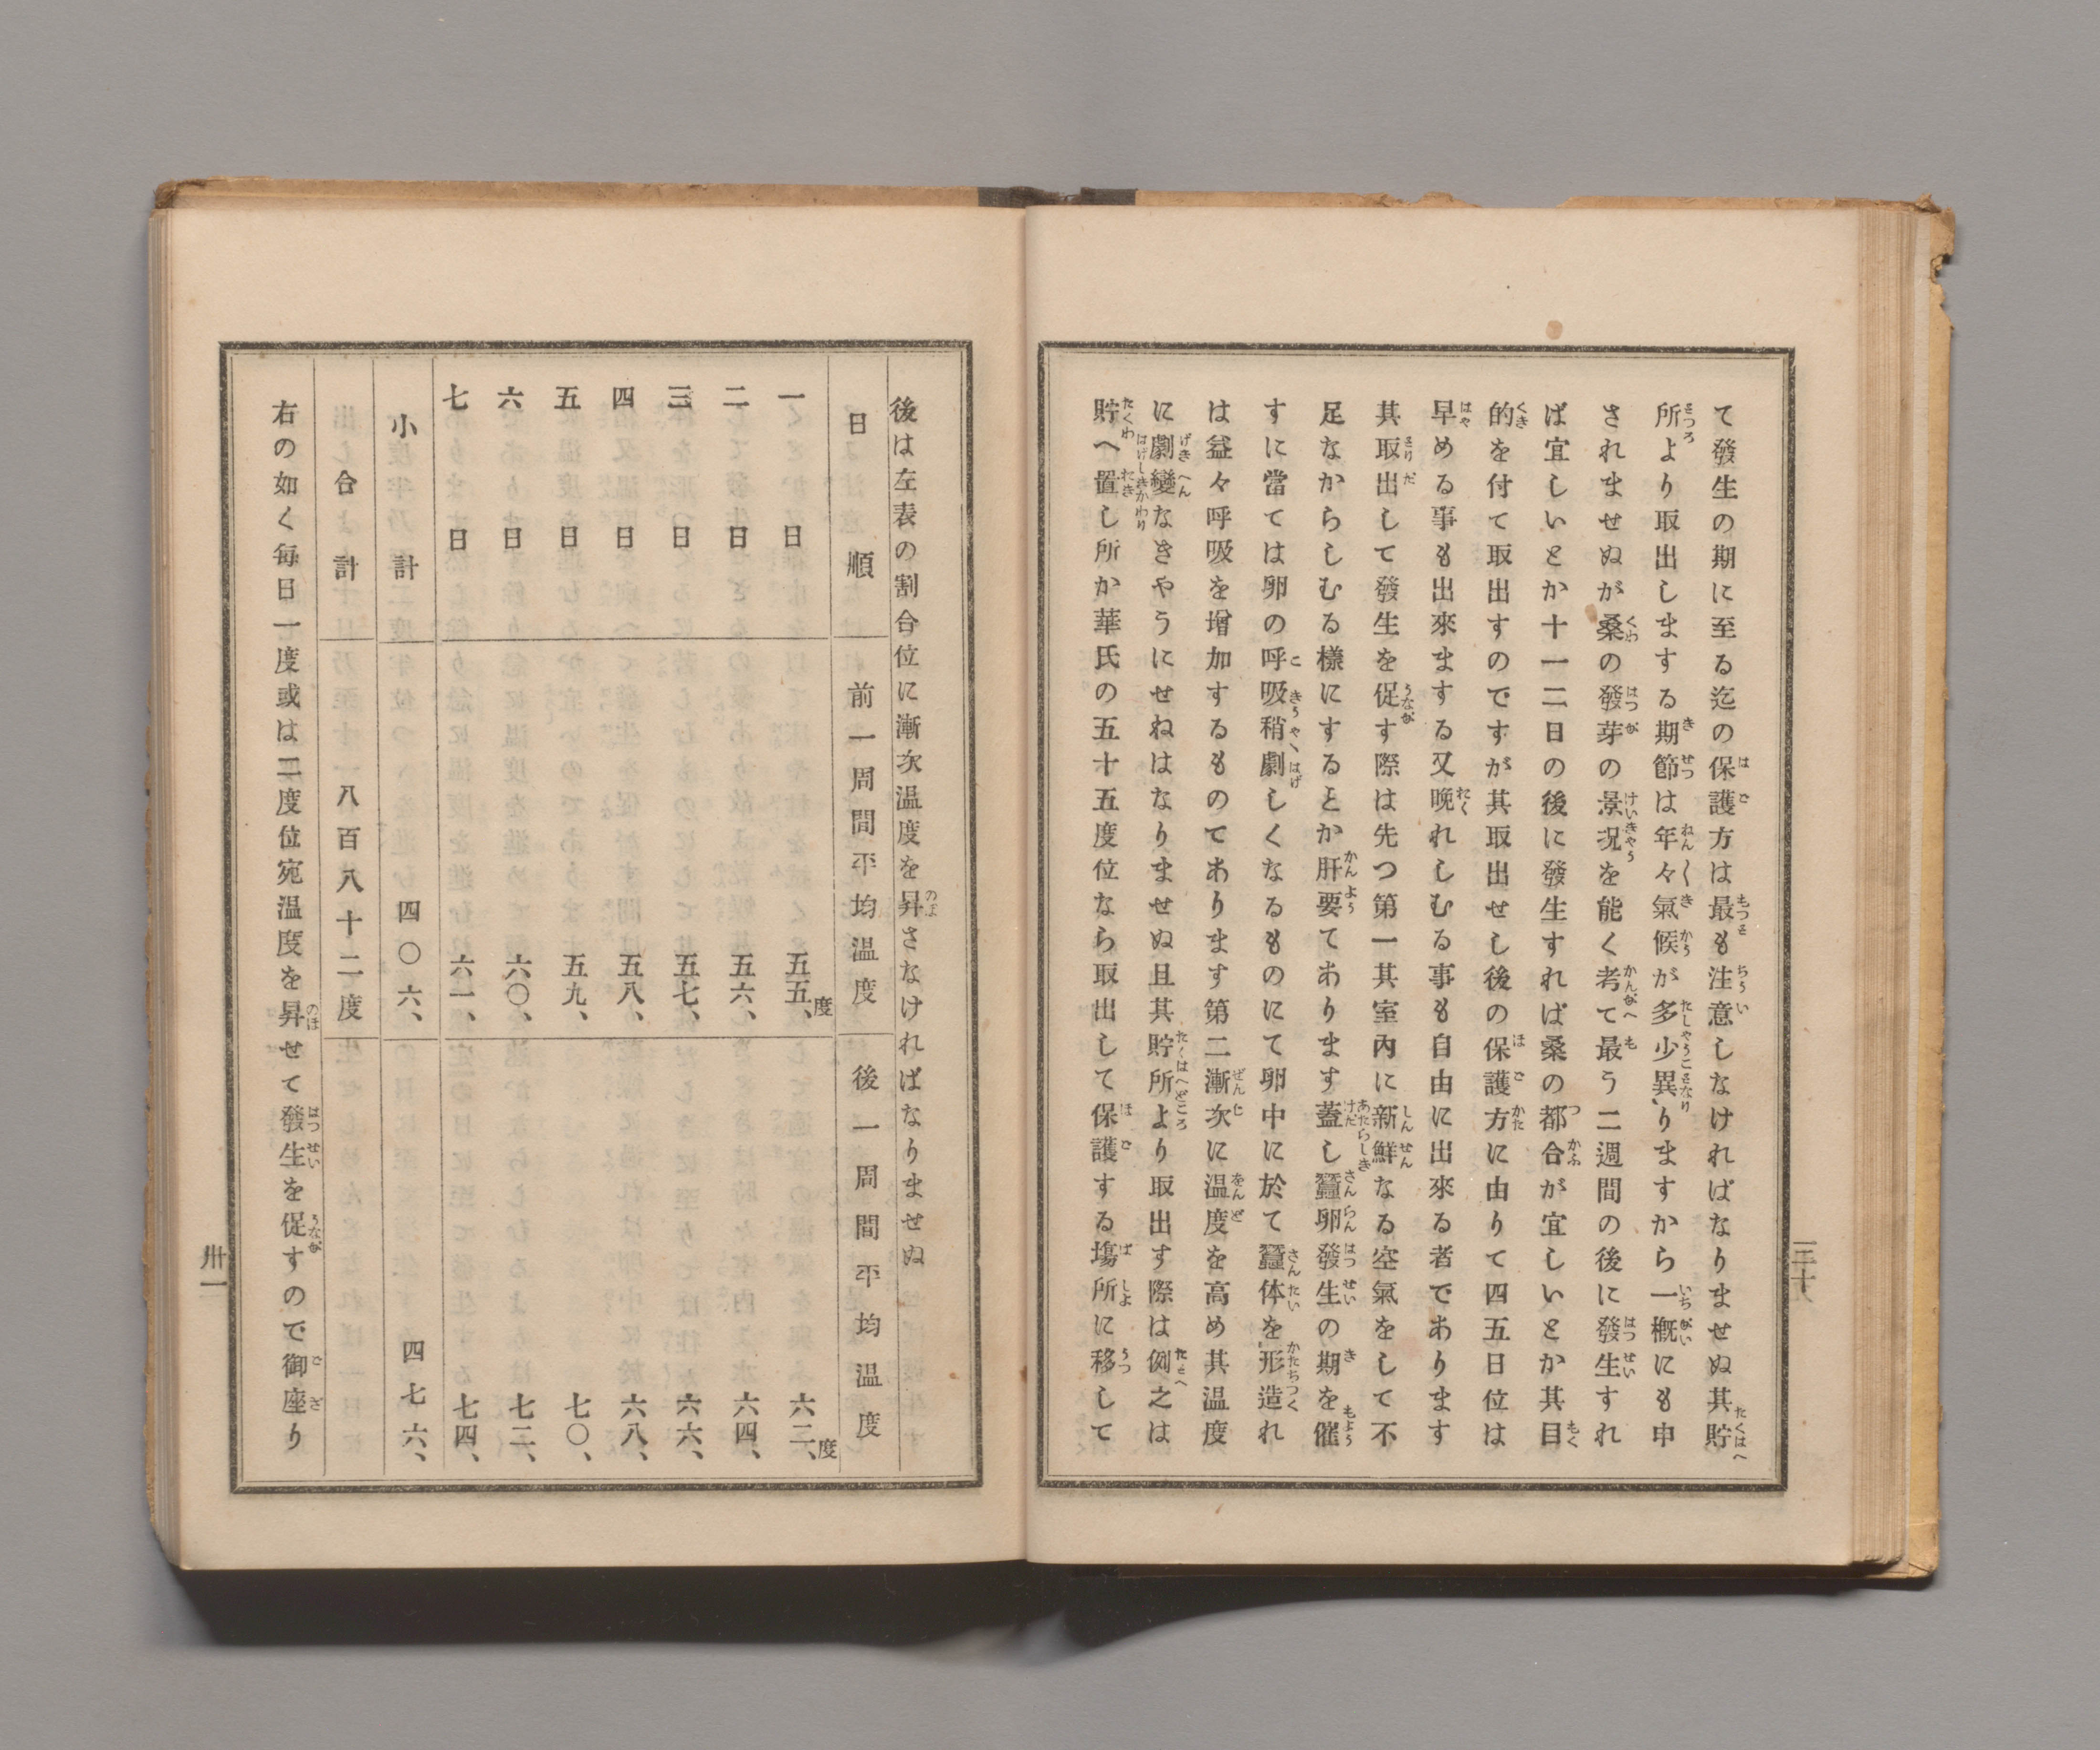 て發生の期に至る迄の保護方は最も注意しなければなりませぬ其貯
所より取出しまする期節は年々氣候が多少異りますから一概にも申
されませぬが桑の發芽の景况を能く考て最う二週間の後に發生すれ
ば宜しいとか十一二日の後に發生すれば桑の都合が宜しいとか其目
的を付て取出すのですが其取出せし後の保護方に由りて四五日位は
早める事も出來まする又晩れしむる事も自由に出來る者であります
其取出して發生を促す際は先つ第一其室內に新鮮なる空氣をして不
足なからしむる樣にするとか肝要てあります蓋し蠶卵發生の期を催
すに當ては卵の呼吸稍劇しくなるものにて卵中に於て蠶体を形造れ
は益々呼吸を增加するものてあります第二漸次に温度を高め其温度
に劇變なきやうにせねはなりませぬ且其貯所より取出す際は例之は
貯へ置し所か華氏の五十五度位なら取出して保護する塲所に移して
三十
後は左表の割合位に漸次温度を昇さなければなりませぬ
日順 前一周間平均温度 後一周間平均温度
一日 五五、度 六二、度
二日 五六、 六四、
三日 五七、 六六、
四日 五八、 六八、
五日 五九、 七〇、
六日 六〇、 七二、
七日 六一、 七四、
小計 四〇六、 四七六、
合計 八百八十二度
右の如く每日一度或は二度位宛温度を昇せて發生を促すので御座り
卅一